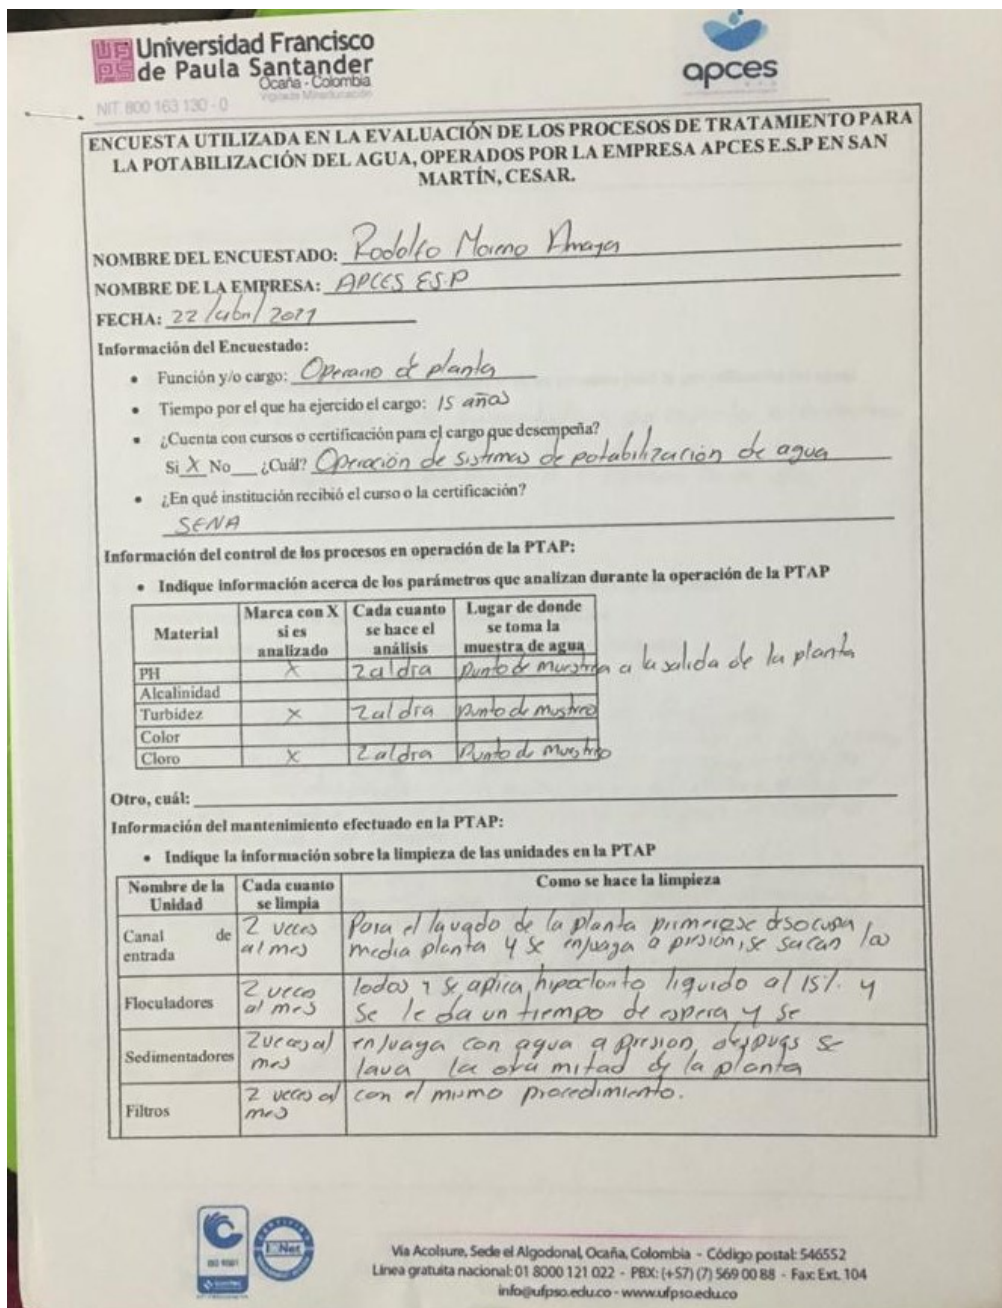 UFPS
Universidad Francisco
de Paula Santander
Ocaña - Colombia
Vigilada Mineducación
NIT. 800 163 130 - 0
apces
ENCUESTA UTILIZADA EN LA EVALUACIÓN DE LOS PROCESOS DE TRATAMIENTO PARA
LA POTABILIZACIÓN DEL AGUA, OPERADOS POR LA EMPRESA APCES E.S.P EN SAN
MARTÍN, CESAR.
NOMBRE DEL ENCUESTADO: Rodolfo Moreno Amaya
NOMBRE DE LA EMPRESA: APCES E.S.P
FECHA: 22 /abri/ 2021
Información del Encuestado:
• Función y/o cargo: Operario de planta
• Tiempo por el que ha ejercido el cargo: 15 años
• ¿Cuenta con cursos o certificación para el cargo que desempeña?
Si X No __ ¿Cuál? Operación de sistemas de potabilización de agua
• ¿En qué institución recibió el curso o la certificación?
SENA
Información del control de los procesos en operación de la PTAP:
• Indique información acerca de los parámetros que analizan durante la operación de la PTAP
Material | Marca con X si es analizado | Cada cuanto se hace el análisis | Lugar de donde se toma la muestra de agua
PH | X | 2 al dia | punto de muestreo a la salida de la planta
Alcalinidad
Turbidez | X | 2 al dia | punto de mustreo
Color
Cloro | X | 2 al dia | Punto de muestreo
Otro, cuál:
Información del mantenimiento efectuado en la PTAP:
• Indique la información sobre la limpieza de las unidades en la PTAP
Nombre de la Unidad | Cada cuanto se limpia | Como se hace la limpieza
Canal de entrada | 2 veces al mes | Para el lavado de la planta primero se desocupa media planta y se enjuaga a presion, se sacan los
Floculadores | 2 veces al mes | lodos y se aplica hipoclorito liquido al 15% y se le da un tiempo de espera y se
Sedimentadores | 2 veces al mes | enjuaga con agua a presion, despues se lava la otra mitad de la planta
Filtros | 2 veces al mes | con el mismo procedimiento.
ISO 9001
IQNet
Vía Acolsure, Sede el Algodonal, Ocaña, Colombia - Código postal: 546552
Línea gratuita nacional: 01 8000 121 022 - PBX: (+57) (7) 569 00 88 - Fax: Ext. 104
info@ufpso.edu.co - www.ufpso.edu.co